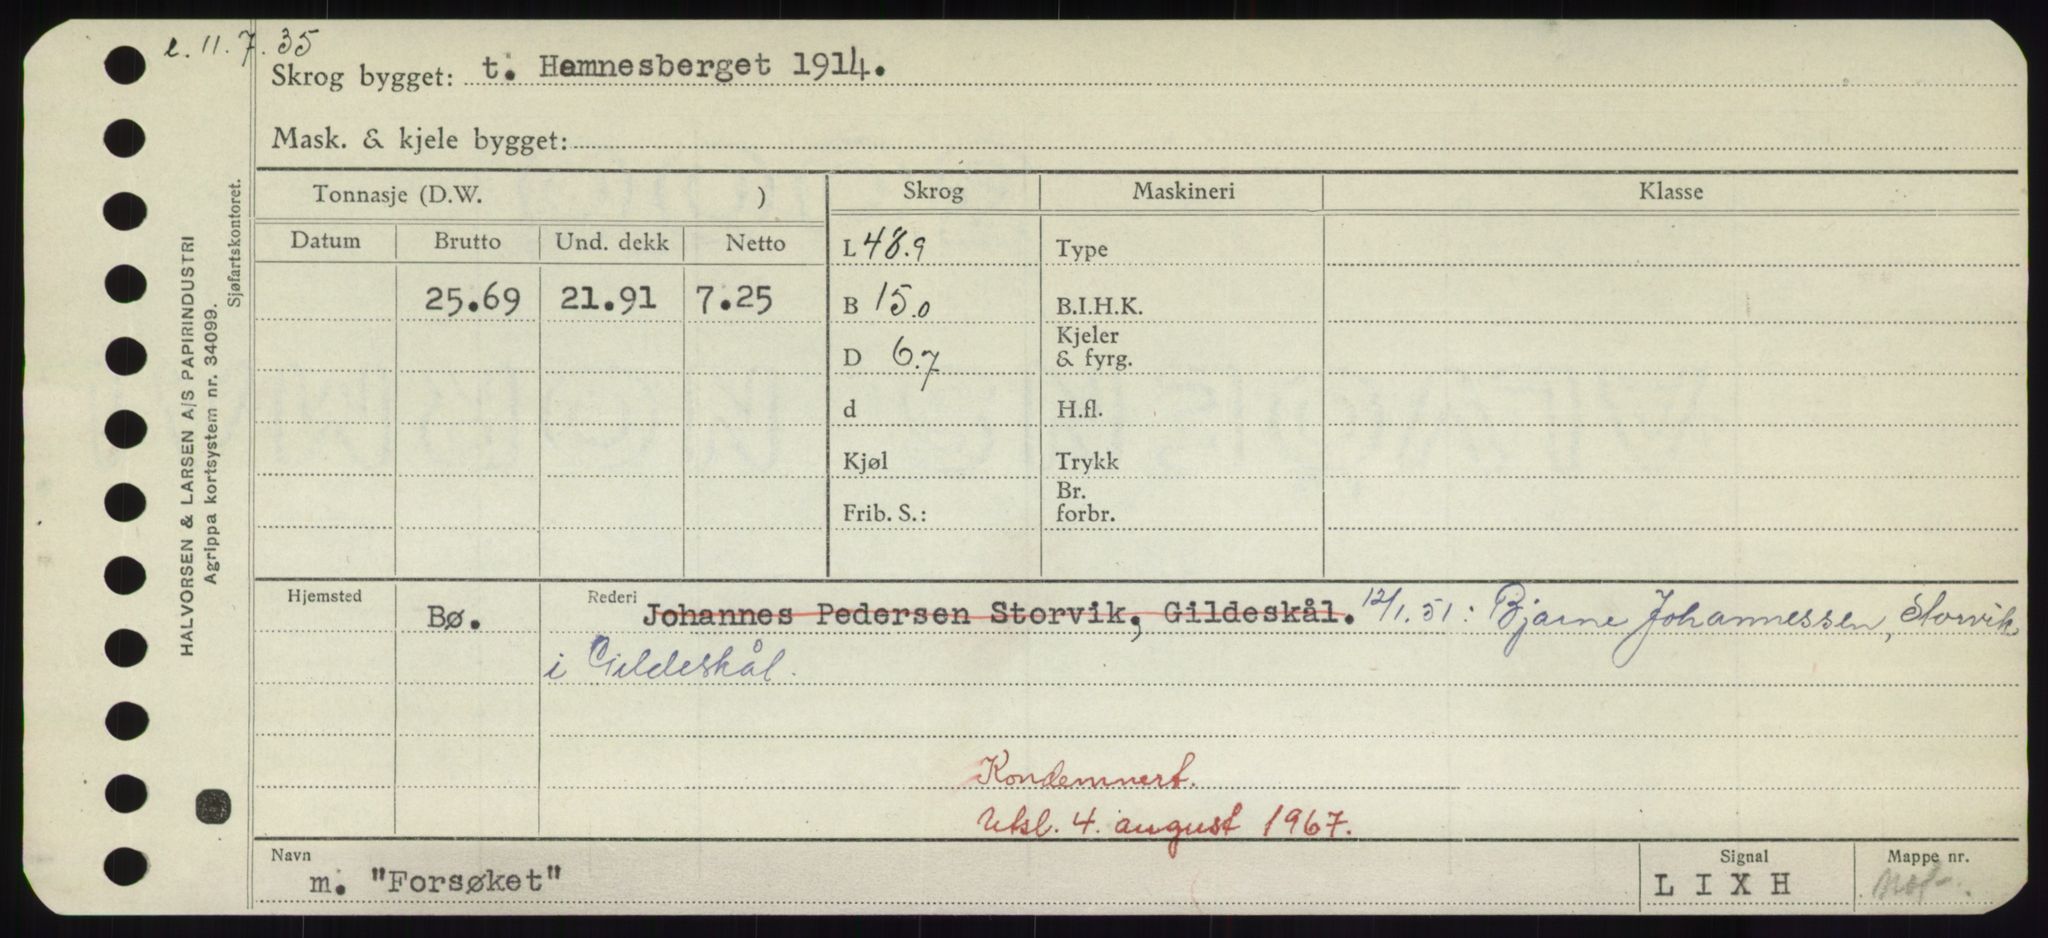 e. 11.7.35
Skrog bygget: t. Hemnesberget 1914.
Mask. & kjele bygget:
Tonnasje (D.W. )
Skrog
Maskineri
Klasse
Datum
Brutto
Und. dekk
Netto
L 48.9
Type
25.69
21.91
7.25
B 15.0
B.I.H.K.
D 6.7
Kjeler
& fyrg.
d
H.fl.
Kjøl
Trykk
Frib. S.:
Br.
forbr.
Hjemsted
Bø.
Rederi
Johannes Pedersen Storvik, Gildeskål. 12/1.51: Bjarne Johannessen, Storvik
i Gildeskål.
Kondemnert.
Utsl. 4. august 1967.
Navn
m. "Forsøket"
Signal
L I X H
Mappe nr.
HALVORSEN & LARSEN A/S PAPIRINDUSTRI
Agrippa kortsystem nr. 34099.
Sjøfartskontoret.